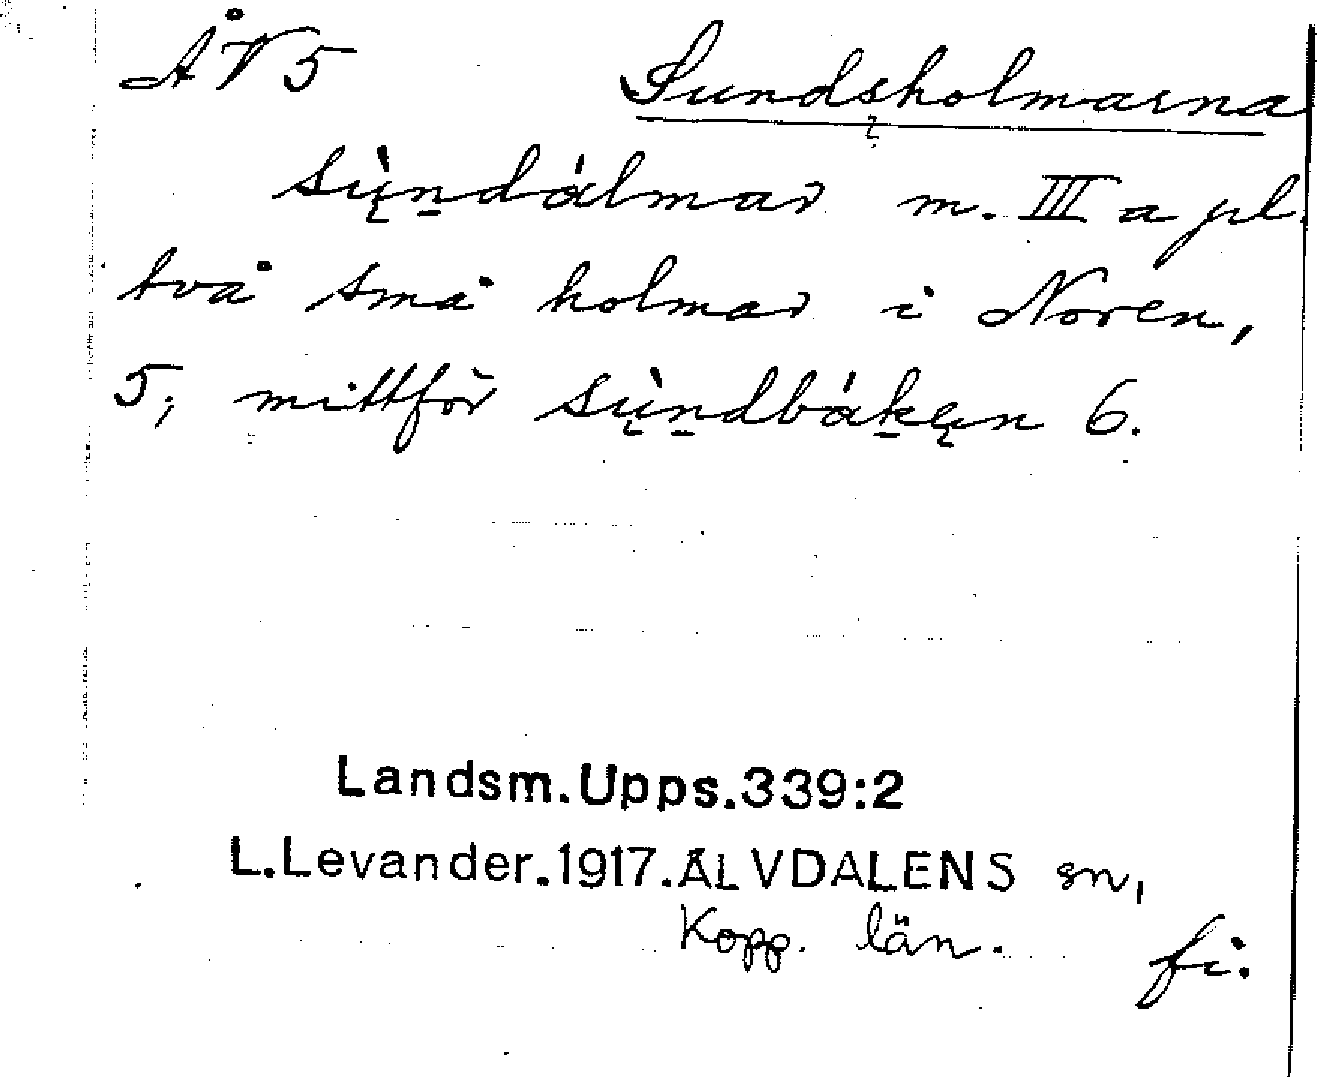 ÅV 5 Sundsholmarna
sųn̠dálmar m. III a pl.
två små holmar i Noren,
5; mittför sųn̠dbák̠ęn 6.
Landsm.Upps.339:2
L.Levander.1917.ÄLVDALENS sn,
Kopp. län. fi.